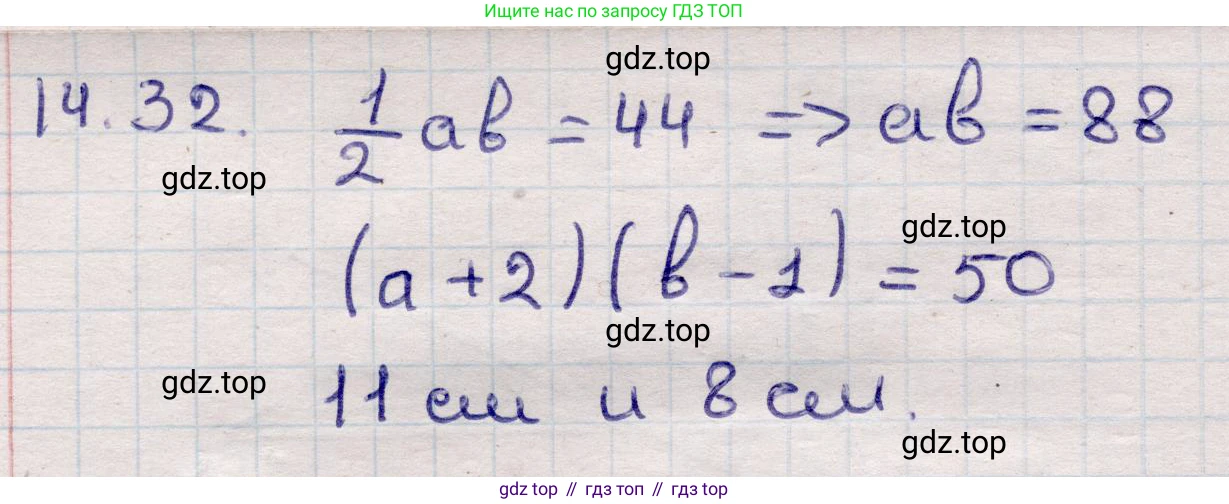 Ищите нас по запросу ГДЗ ТОП
gdz.top
14.32. 1/2 ab = 44 => ab = 88
gdz.top
gdz.top
(a + 2)(b - 1) = 50
gdz.top
gdz.top
11 см и 8 см.
gdz.top
gdz top // гдз топ // gdz top